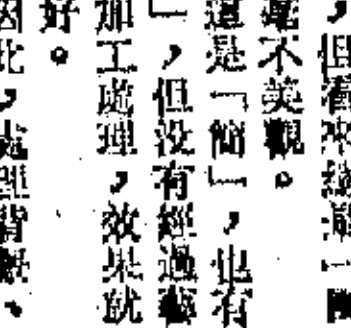 ，但看來總還「簡
毫不美觀。
還是「簡」，也有
」，但没有經過藝
加工處理，效果就
好。
因此，處理背景、